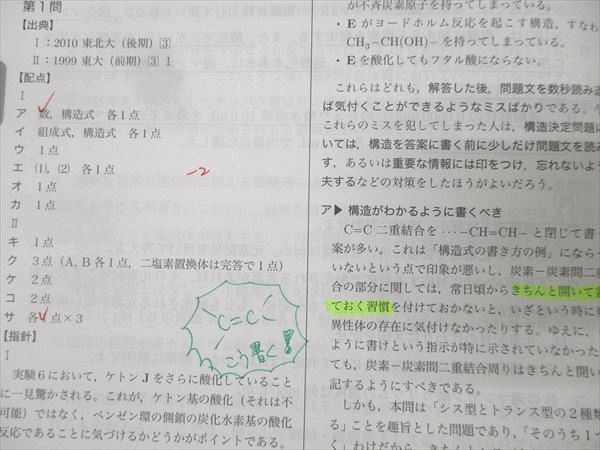 第1問
【出典】
Ⅰ：2010 東北大（後期）③
Ⅱ：1999 東大（前期）③ Ⅰ
【配点】
Ⅰ
ア 数，構造式 各1点
イ 組成式，構造式 各1点
ウ 1点
エ (1)，(2) 各1点
-2
オ 1点
カ 1点
Ⅱ
キ 1点
ク 3点（A，B各1点，二塩素置換体は完答で1点）
ケ 2点
コ 2点
サ 各1点×3
C=C
こう書く!
【指針】
Ⅰ
実験6において，ケトンJをさらに酸化していること
に一見驚かされる。これが，ケトン基の酸化（それは不
可能）ではなく，ベンゼン環の側鎖の炭化水素基の酸化
反応であることに気づけるかどうかがポイントである。
が不斉炭素原子を持ってしまっている。
・Eがヨードホルム反応を起こす構造，すなわ
CH₃−CH(OH)− を持ってしまっている。
・Eを酸化してもフタル酸にならない。
これらはどれも，解答した後，問題文を数秒読み返
ば気付くことができるようなミスばかりである。今
これらのミスを犯してしまった人は，構造決定問題に
いては，構造を答案に書く前に少しだけ問題文を読み
す，あるいは重要な情報には印をつけ，忘れないよう
夫するなどの対策をしたほうがよいだろう。
ア▶ 構造がわかるように書くべき
C=C 二重結合を …−CH=CH− と閉じて書
案が多い。これは「構造式の書き方の例」にならっ
いないという点で印象が悪いし，炭素−炭素間二重
合の部分に関しては，常日頃からきちんと開いて書
ておく習慣を付けておかないと，いざという時に幾
異性体の存在に気付けなかったりする。ゆえに，
ように書けという指示が特に示されていなかった
ても，炭素−炭素間二重結合周りはきちんと開い
記するようにすべきである。
しかも，本問は「シス型とトランス型の2種類
る」ことを趣旨とした問題であり，「そのうち1つ